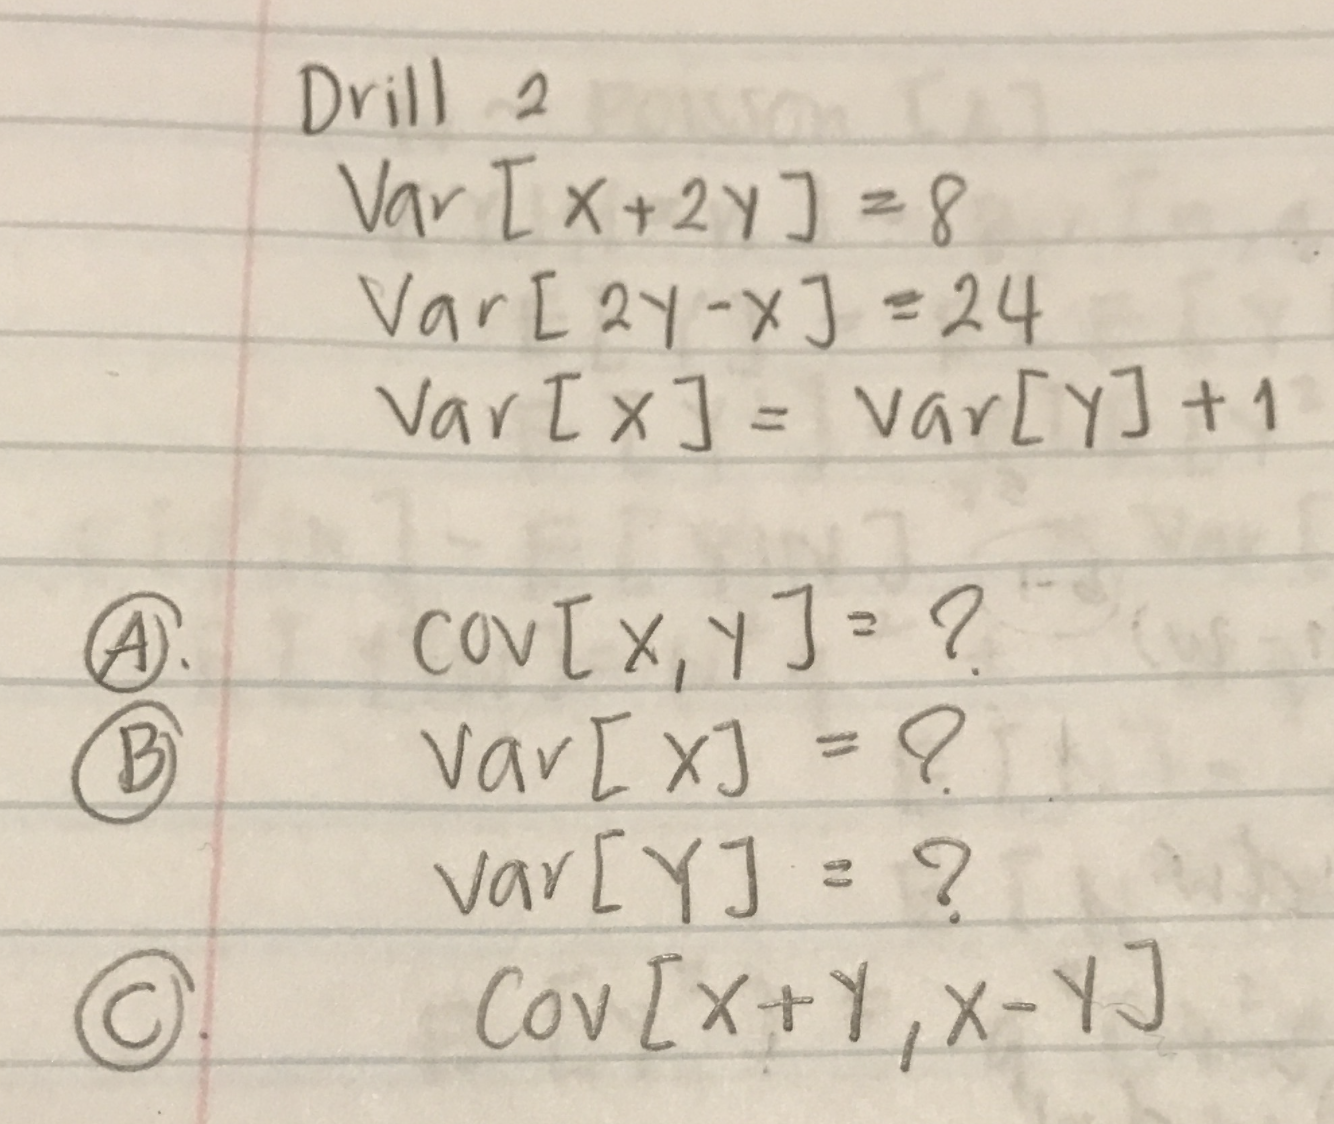 Drill 2
Var [ X + 2Y ] = 8
Var [ 2Y - X ] = 24
Var [ X ] = Var [ Y ] + 1
(A). Cov [ X, Y ] = ?
(B) Var [ X ] = ?
Var [ Y ] = ?
(C). Cov [ X + Y, X - Y ]